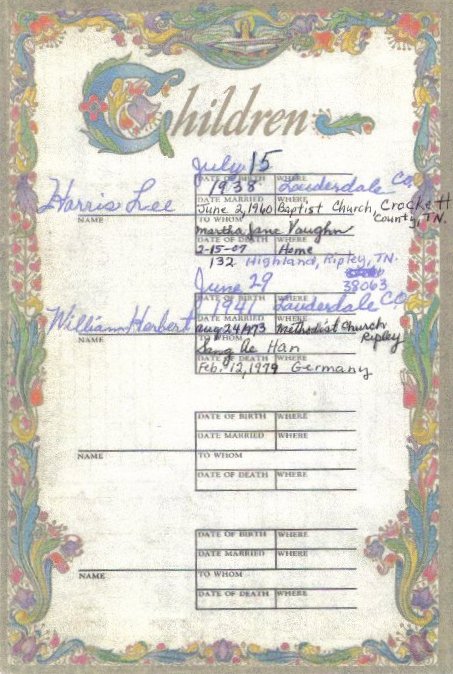 Children
July 15
DATE OF BIRTH WHERE
1938 Lauderdale Co
Harris Lee
DATE MARRIED WHERE
June 2, 1960 Baptist Church, Crockett
County, TN.
NAME
TO WHOM
Martha Jane Vaughn
DATE OF DEATH WHERE
2-15-07 Home
132 Highland, Ripley, TN.
38063
June 29
DATE OF BIRTH WHERE
1941 Lauderdale CO
William Herbert
DATE MARRIED WHERE
Aug 24 1973 Methodist Church
Ripley
NAME
TO WHOM
Sang Ae Han
DATE OF DEATH WHERE
Feb. 12, 1979 Germany
DATE OF BIRTH WHERE
DATE MARRIED WHERE
NAME
TO WHOM
DATE OF DEATH WHERE
DATE OF BIRTH WHERE
DATE MARRIED WHERE
NAME
TO WHOM
DATE OF DEATH WHERE